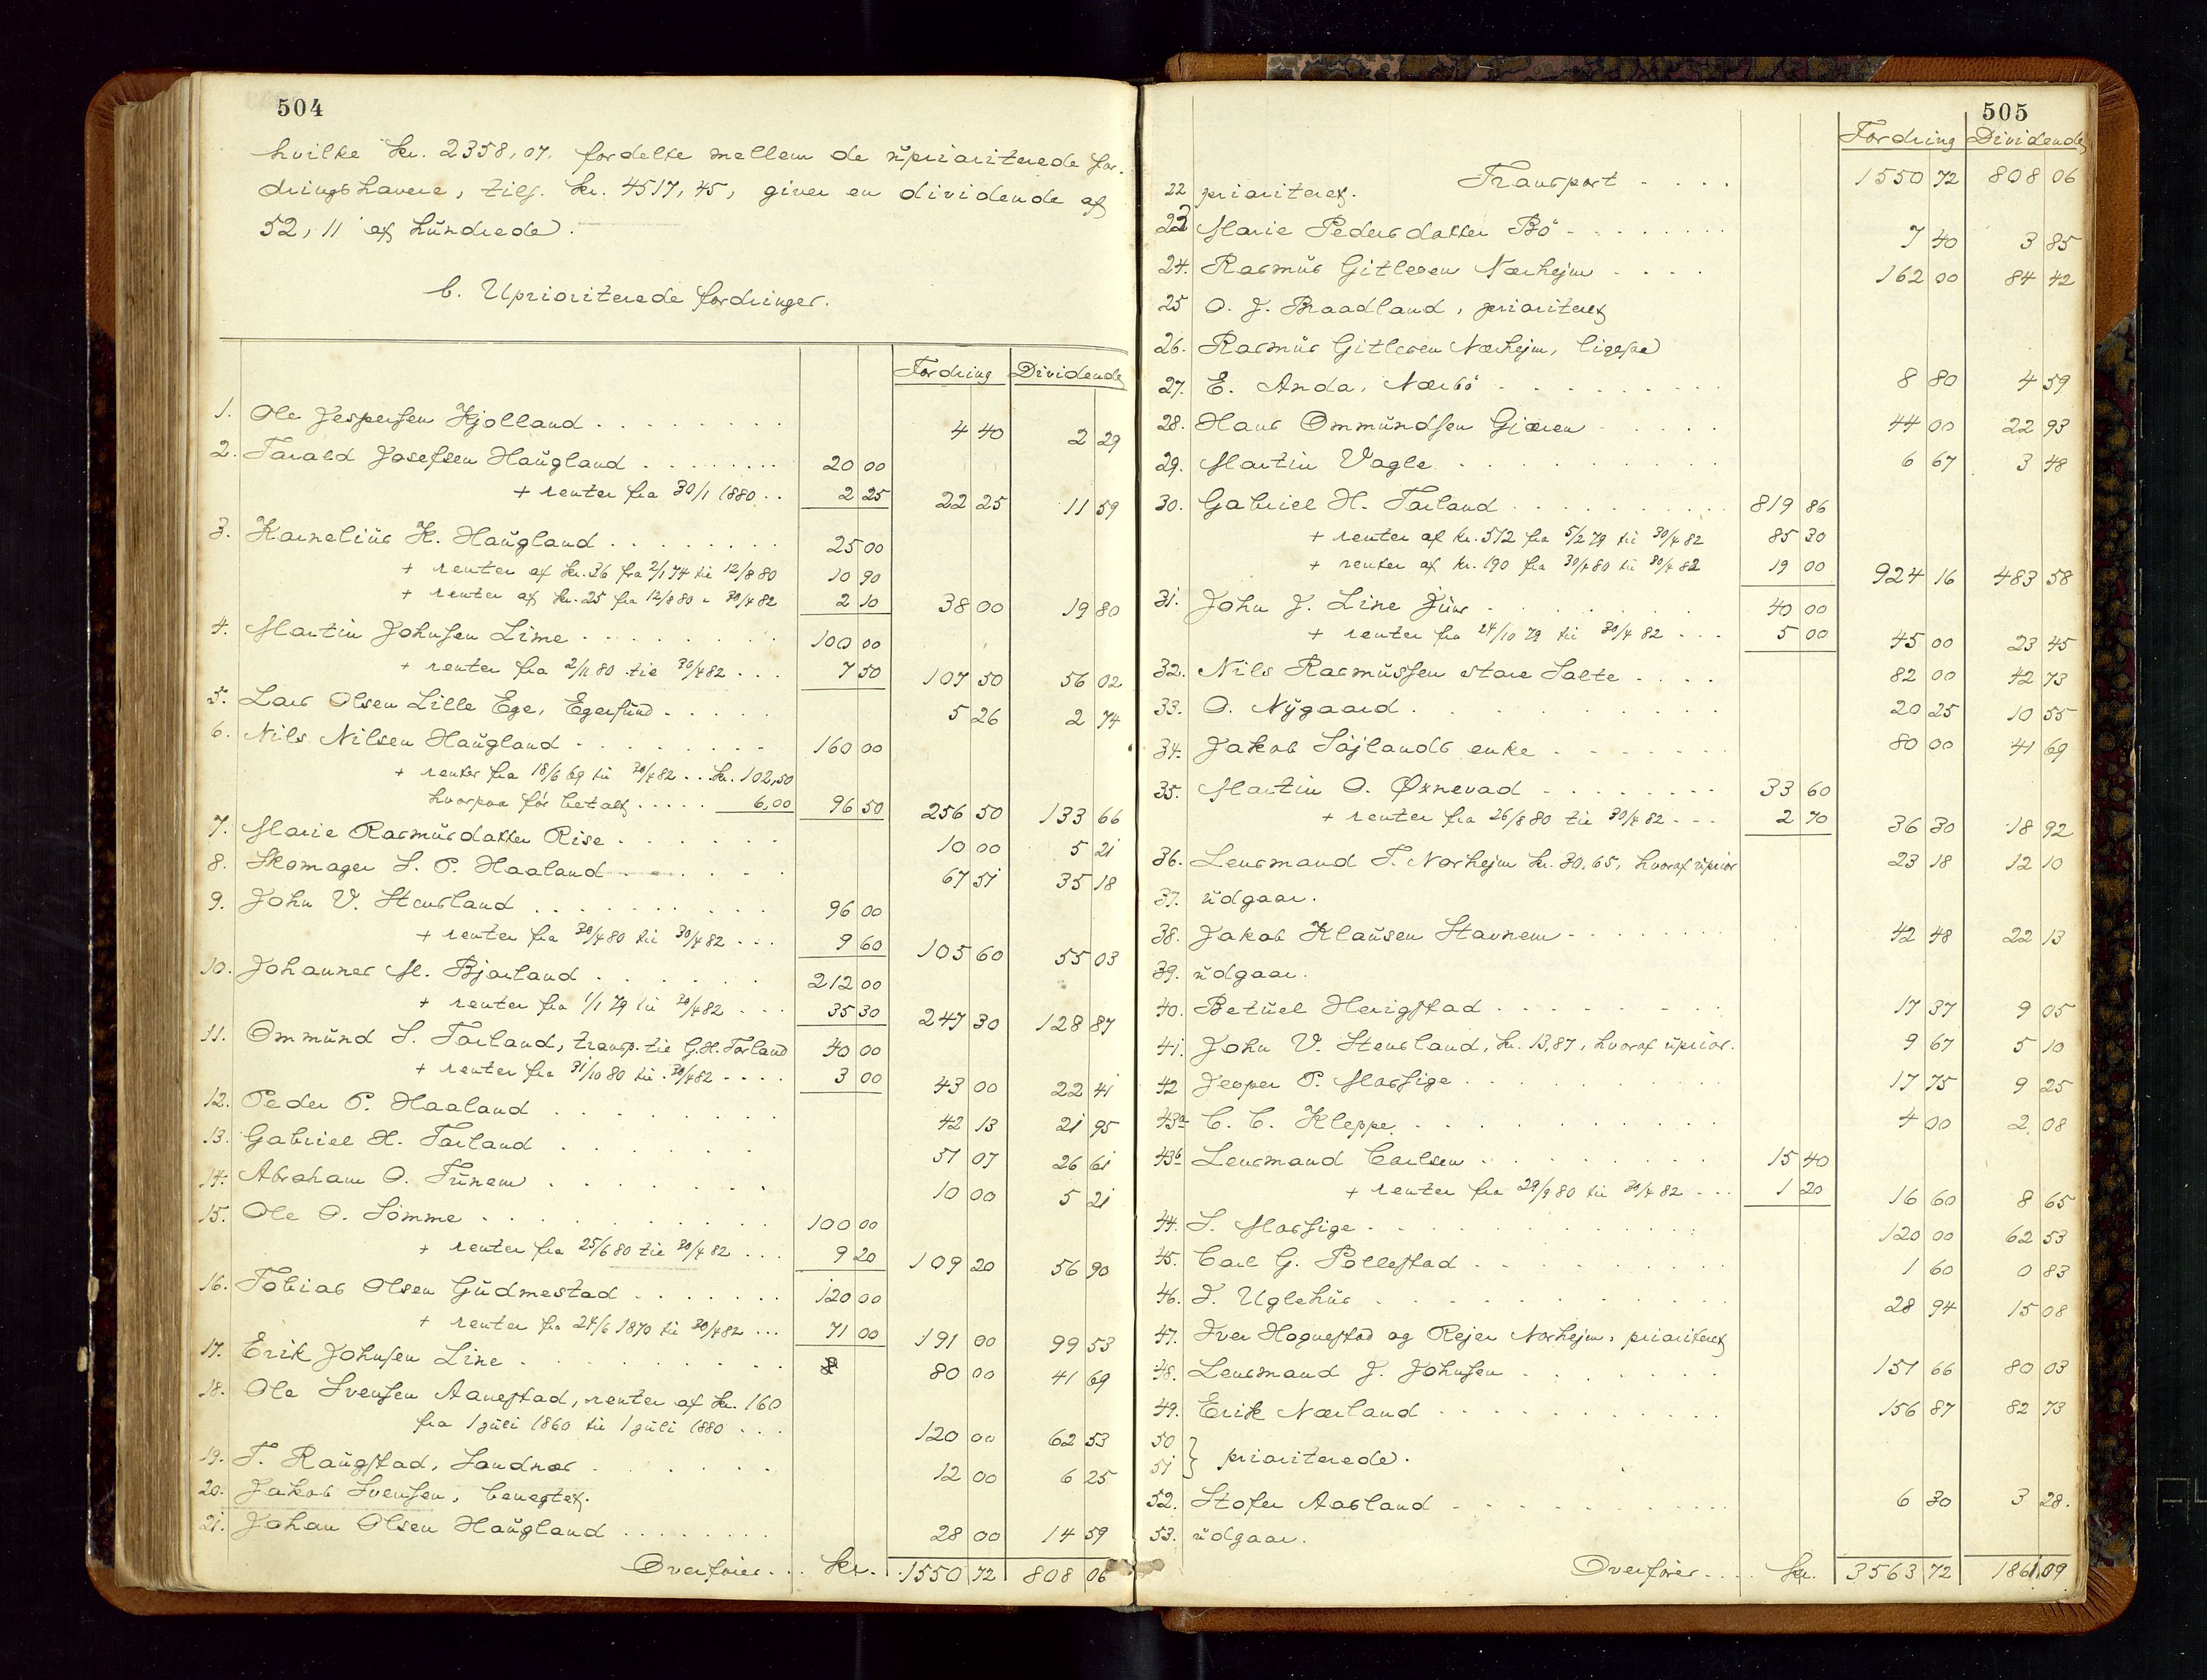 504
hvilke kr. 2358,07, fordelte mellem de uprioriterede for-
dringshavere, tils. kr. 4517,45, giver en dividende af
52,11 af hundrede.
b. Uprioriterede fordringer.
Fordring Dividende
1. Ole Jespersen Hjolland . . . 4 40 2 29
2. Tarald Josefsen Haugland . . . 20 00
+ renter fra 30/1 1880 . . 2 25 22 25 11 59
3. Kornelius K. Haugland . . . 25 00
+ renter af kr. 36 fra 2/1 74 til 12/8 80 10 90
+ renter af kr. 25 fra 12/8 80 " 30/4 82 2 10 38 00 19 80
4. Martin Johnsen Lime . . . 100 00
+ renter fra 2/11 80 til 30/4 82 . . . 7 50 107 50 56 02
5. Lars Olsen Lille Ege, Egersund . . . 5 26 2 74
6. Nils Nilsen Haugland . . . 160 00
+ renter fra 18/6 69 til 30/4 82 . . kr. 102,50
hvorpaa før betalt . . . 6,00 96 50 256 50 133 66
7. Marie Rasmusdatter Rise . . . 10 00 5 21
8. Skomager S. P. Haaland . . . 67 51 35 18
9. John V. Stensland . . . 96 00
+ renter fra 30/4 80 til 30/4 82 . . . 9 60 105 60 55 03
10. Johannes M. Bjorland . . . 212 00
+ renter fra 1/1 79 til 30/4 82 . . . 35 30 247 30 128 87
11. Ommund S. Torland, transp. til G. H. Torland 40 00
+ renter fra 31/10 80 til 30/4 82 . . . 3 00 43 00 22 41
12. Peder P. Haaland . . . 42 13 21 95
13. Gabriel H. Torland . . . 51 07 26 61
14. Abraham O. Tunem . . . 10 00 5 21
15. Ole O. Sömme . . . 100 00
+ renter fra 25/6 80 til 30/4 82 . . . 9 20 109 20 56 90
16. Tobias Olsen Gudmestad . . . 120 00
+ renter fra 24/6 1870 til 30/4 82 . . . 71 00 191 00 99 53
17. Erik Johnsen Line . . . 80 00 41 69
18. Ole Svensen Aanestad, renter af kr. 160
fra 1 juli 1860 til 1 juli 1880 . . . 120 00 62 53
19. T. Raugstad, Sandnæs . . . 12 00 6 25
20. Jakob Svensen, benegtet.
21. Johan Olsen Haugland . . . 28 00 14 59
Overføres . . . kr. 1550 72 808 06
505
Fordring Dividende
Transport . . . 1550 72 808 06
22 prioriteret.
23 Marie Pedersdatter Bö . . . 7 40 3 85
24. Rasmus Gitlesen Nærhejm . . . 162 00 84 42
25 O. J. Braadland, prioriteret
26. Rasmus Gitlesen Nærhejm, ligesaa
27. E. Anda, Nærbö . . . 8 80 4 59
28. Hans Ommundsen Gjæren . . . 44 00 22 93
29. Martin Vagle . . . 6 67 3 48
30. Gabriel H. Torland . . . 819 86
+ renter af kr. 572 fra 5/2 79 til 30/4 82 85 30
+ renter af kr. 190 fra 30/4 80 til 30/4 82 19 00 924 16 483 58
31. John J. Line Jun . . . 40 00
+ renter fra 24/10 79 til 30/4 82 . . . 5 00 45 00 23 45
32. Nils Rasmussen store Salte . . . 82 00 42 73
33. O. Nygaard . . . 20 25 10 55
34. Jakob Söjlands enke . . . 80 00 41 69
35. Martin O. Øxnevad . . . 33 60
+ renter fra 26/8 80 til 30/4 82 . . . 2 70 36 30 18 92
36. Lensmand T. Nærhejm kr. 30,65, hvoraf uprior 23 18 12 10
37. udgaar.
38. Jakob Klausen Stavnem . . . 42 48 22 13
39. udgaar.
40. Betuel Herigstad . . . 17 37 9 05
41. John V. Stensland, kr. 13,87, hvoraf uprior. 9 67 5 10
42 Jesper P. Mossige . . . 17 75 9 25
43a C. C. Kleppe . . . 4 00 2 08
43b Lensmand Carlsen . . . 15 40
+ renter fra 29/9 80 til 30/4 82 . . . 1 20 16 60 8 65
44. S. Mossige . . . 120 00 62 53
45. Carl G. Pollestad . . . 1 60 0 83
46. T. Uglehus . . . 28 94 15 08
47. Iver Hognestad og Rejer Nærhejm, prioriteret
48. Lensmand J. Johnsen . . . 151 66 80 03
49. Erik Nærland . . . 156 87 82 73
50
51 } prioriterede.
52. Stofer Aasland . . . 6 30 3 28.
53. udgaar.
Overføres . . . kr. 3563 72 1861,09